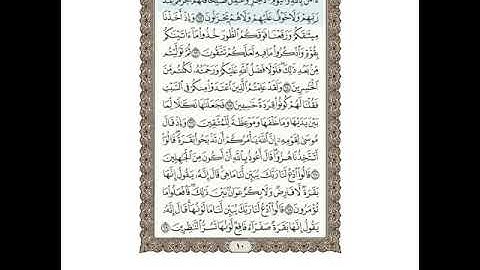 ءَامَنَ بِٱللَّهِ وَٱلْيَوْمِ ٱلْءَاخِرِ وَعَمِلَ صَٰلِحًا فَلَهُمْ أَجْرُهُمْ عِندَ
رَبِّهِمْ وَلَا خَوْفٌ عَلَيْهِمْ وَلَا هُمْ يَحْزَنُونَ ٦٢ وَإِذْ أَخَذْنَا
مِيثَٰقَكُمْ وَرَفَعْنَا فَوْقَكُمُ ٱلطُّورَ خُذُوا۟ مَآ ءَاتَيْنَٰكُم
بِقُوَّةٍ وَٱذْكُرُوا۟ مَا فِيهِ لَعَلَّكُمْ تَتَّقُونَ ٦٣ ثُمَّ تَوَلَّيْتُم
مِّنۢ بَعْدِ ذَٰلِكَ فَلَوْلَا فَضْلُ ٱللَّهِ عَلَيْكُمْ وَرَحْمَتُهُۥ لَكُنتُم مِّنَ
ٱلْخَٰسِرِينَ ٦٤ وَلَقَدْ عَلِمْتُمُ ٱلَّذِينَ ٱعْتَدَوْا۟ مِنكُمْ فِى ٱلسَّبْتِ
فَقُلْنَا لَهُمْ كُونُوا۟ قِرَدَةً خَٰسِـِٔينَ ٦٥ فَجَعَلْنَٰهَا نَكَٰلًا لِّمَا
بَيْنَ يَدَيْهَا وَمَا خَلْفَهَا وَمَوْعِظَةً لِّلْمُتَّقِينَ ٦٦ وَإِذْ قَالَ
مُوسَىٰ لِقَوْمِهِۦٓ إِنَّ ٱللَّهَ يَأْمُرُكُمْ أَن تَذْبَحُوا۟ بَقَرَةً قَالُوٓا۟
أَتَتَّخِذُنَا هُزُوًا قَالَ أَعُوذُ بِٱللَّهِ أَنْ أَكُونَ مِنَ ٱلْجَٰهِلِينَ ٦٧
قَالُوا۟ ٱدْعُ لَنَا رَبَّكَ يُبَيِّن لَّنَا مَا هِىَ قَالَ إِنَّهُۥ يَقُولُ إِنَّهَا
بَقَرَةٌ لَّا فَارِضٌ وَلَا بِكْرٌ عَوَانٌۢ بَيْنَ ذَٰلِكَ فَٱفْعَلُوا۟ مَا
تُؤْمَرُونَ ٦٨ قَالُوا۟ ٱدْعُ لَنَا رَبَّكَ يُبَيِّن لَّنَا مَا لَوْنُهَا قَالَ إِنَّهُۥ
يَقُولُ إِنَّهَا بَقَرَةٌ صَفْرَآءُ فَاقِعٌ لَّوْنُهَا تَسُرُّ ٱلنَّٰظِرِينَ ٦٩
١٠